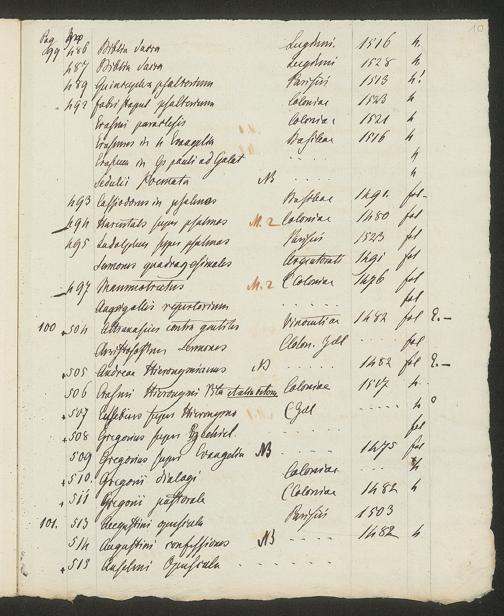 10
Pag. Nro
99 486 Biblia sacra Lugduni. 1516 4.
487 Biblia sacra Lugduni 1528 4.
489 Quincuplex psalterium Parisiis 1513 4.
492 fabri Stapul psalterium Coloniae 1523 4
Erasmi paraclesis Coloniae 1521 4
Erasmus in 4 Evangelia Basileae 1516 4
Erasmus in Ep pauli ad Galat . . . . . 4
Sedulii Poemata NB . . . . . 4
493 Cassiodorus in psalmos Basileae 1491. fol.
494 super psalmos M. 2 Coloniae 1480 fol
495 Ludolphus super psalmos Parisiis 1523 fol
Sermones quadragesimales Argentorati 1491 fol
497 Mammotrectus M. 2 Coloniae 1476 fol
repertorium . . . . . fol
100 504 Athanasius contra gentiles Vincentiae 1482 fol E.—
Sermones Colon. fol
505 Andreae Hieronyminus NB . . . . 1482 fol E.—
506 Erasmi Hieronymi Vita Coloniae 1517 4.
507 Eusebius super Hieronymo . . . . . 4
508 Gregorius super Ezechiel. fol
509 Gregorius super Evangelia NB . . . . 1475 fol
510. Gregorii dialogi Coloniae . . .
511 Gregorii pastorale Coloniae 1482 4
101. 513 Augustini opuscula Parisiis 1503
514 Augustini confessiones NB . . . . . 1482 4
515 Anselmi Opuscula . . . . . .